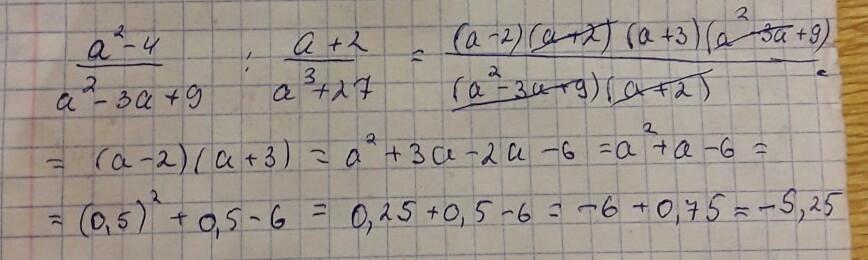 (a² - 4)/(a² - 3a + 9) : (a + 2)/(a³ + 27) = ((a - 2)(a + 2)(a + 3)(a² - 3a + 9))/((a² - 3a + 9)(a + 2)) =
= (a - 2)(a + 3) = a² + 3a - 2a - 6 = a² + a - 6 =
= (0,5)² + 0,5 - 6 = 0,25 + 0,5 - 6 = -6 + 0,75 = -5,25